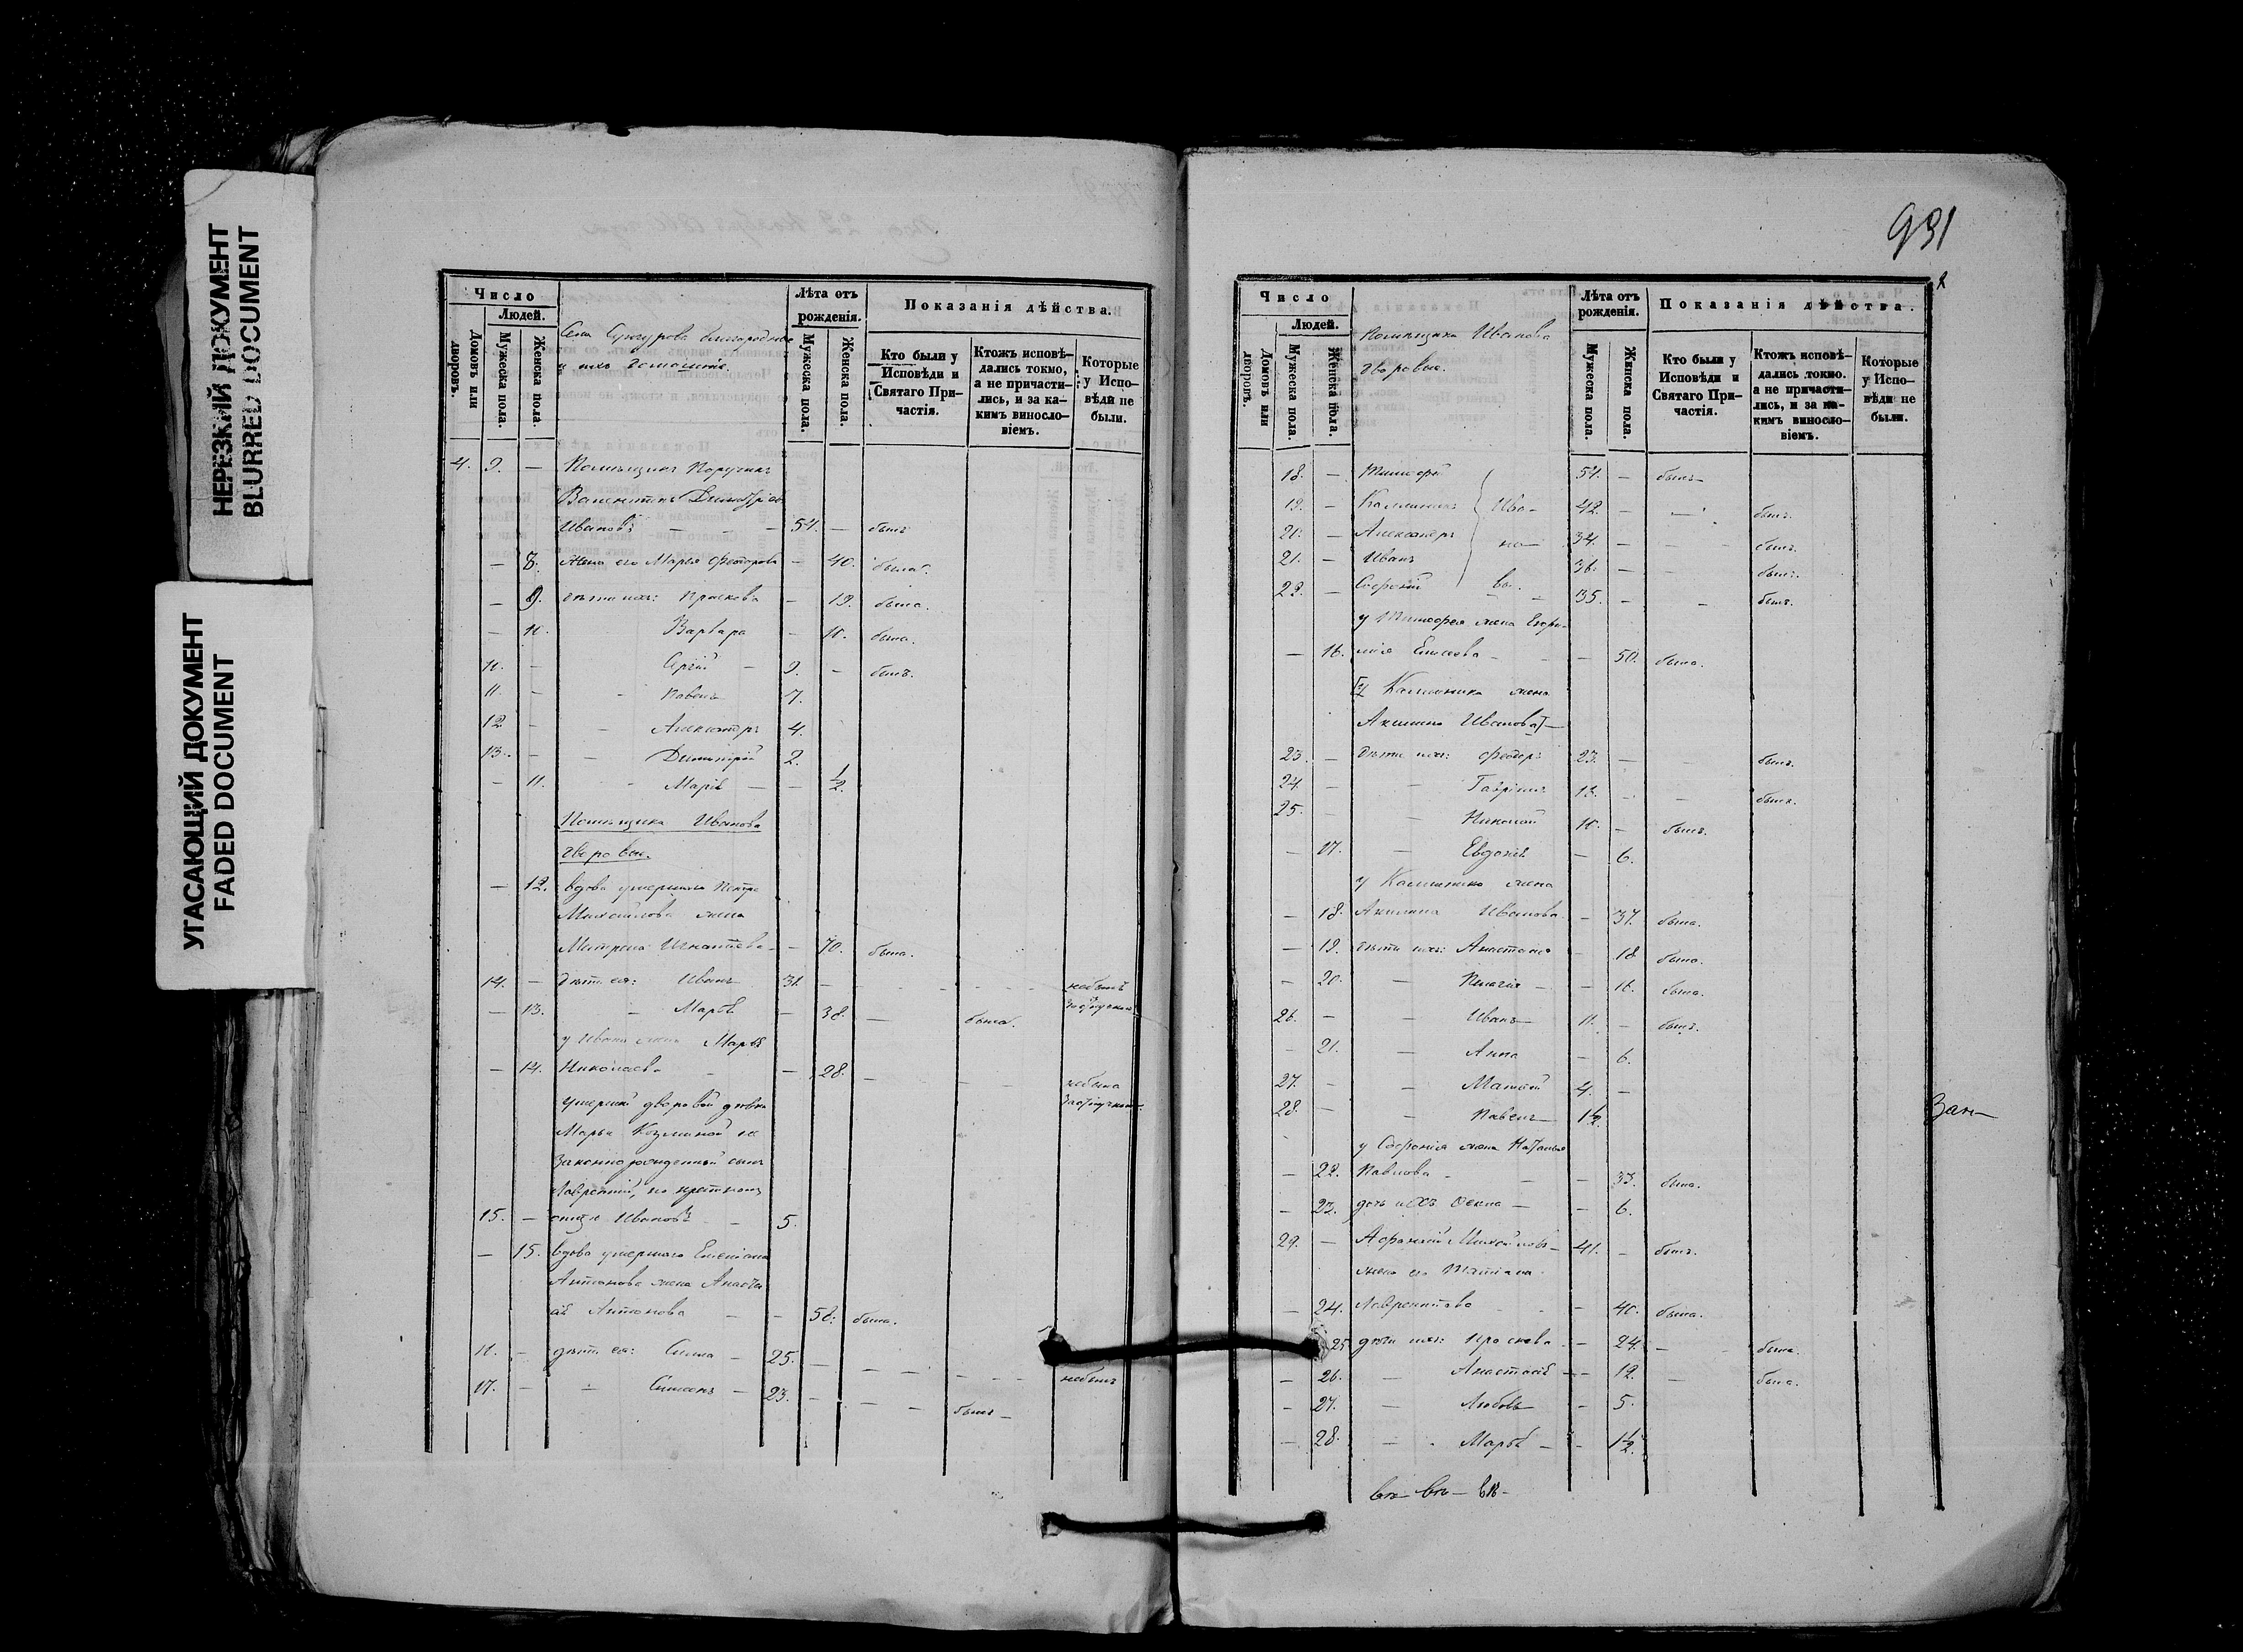 НЕРЕЗКИЙ ДОКУМЕНТ
BLURRED DOCUMENT
УГАСАЮЩИЙ ДОКУМЕНТ
FADED DOCUMENT
Число
Людей.
Домовъ или дворовъ.
Мужеска пола.
Женска пола.
Села Сунгурова благородные
и ихъ домашніе.
Лѣта отъ рожденія.
Мужеска пола.
Женска пола.
Показанія дѣйства.
Кто были у Исповѣди и Святаго Причастія.
Ктожъ исповѣдались токмо, а не причастились, и за какимъ винословіемъ.
Которые у Исповѣди не были.
4. 9. — Помѣщикъ Поручикъ
Валентинъ Димитріевъ
Ивановъ — — 54. — былъ
— 8. Жена его Марья Феодорова — 40. была.
— 9. дѣти ихъ: Прасковья — 19. была.
— 10. Варвара — 10. была.
10. — Сергій — 9. — былъ.
11. — Павелъ 7.
12 — Александръ 4.
13. — Димитрій 2.
— 11. Марія — — 1/2.
Помѣщика Иванова
дворовые.
— 12. вдова умершаго Петра
Михайлова жена
Матрена Игнатьева — — 70. была.
14. — дѣти ея: Иванъ 31. — небылъ
— 13. Марья — 38. — была. за отлучкою
у Ивана жена Марья
— 14. Николаева — 28. — небыла
умершей дворовой дѣвки за отлучкою
Марьи Козминой не
законнорожденный сынъ
Лаврентій, по крестному
15. — отцу Ивановъ — 5.
— 15. вдова умершаго
Антонова жена Анаста
ія Антонова — — 58. была.
16. — дѣти ея: — 25. — небылъ
17. — Симеонъ — 23. — былъ —
931
Число
Людей.
Домовъ или дворовъ.
Мужеска пола.
Женска пола.
Помѣщика Иванова
дворовые.
Лѣта отъ рожденія.
Мужеска пола.
Женска пола.
Показанія дѣйства.
Кто были у Исповѣди и Святаго Причастія.
Ктожъ исповѣдались токмо. а не причастились, и за какимъ винословіемъ.
Которые у Исповѣди не были.
18. — Тимофей 54. — былъ —
19. — Каллиникъ Ива- 42. — — былъ.
20. — Александръ но- 34. — — былъ.
21. — Иванъ 36. — — былъ.
22. — Софроній вы. 35. — — былъ.
у Тимофея жена Евфи-
— 16. мія Елисеева — — 50. была.
[у Каллиника жена
Акилина Иванова] —
23. — дѣти ихъ: Феодоръ 23. — — былъ.
24. — Гавріилъ 13. — — былъ.
25. — Николай 10. — былъ.
— 17. — Евдокія — 6.
у Каллиника жена
— 18. Акилина Иванова — 37. была.
— 19. дѣти ихъ: Анастасія — 18 была.
— 20. — Пелагія — — 16. была.
26. — Иванъ 11. — былъ.
— 21. — Анна — 6.
27. — — Матвѣй 4. —
28. — Павелъ 1 1/2
Зак—
у Софронія жена Наталья
— 22. Павлова — — — 33. была.
— 23. дочь ихъ Фекла — — 6.
29. — Афанасій Михайловъ — 41. — былъ.
жена его Татіана
— 24. Лаврентьева — 40. была.
25 дѣти ихъ: Прасковья — 24. — была.
— 26. — Анастасія — — 12. — была.
— 27. — Любовь — — 5.
— 28. — Марья — — 1 1/2.